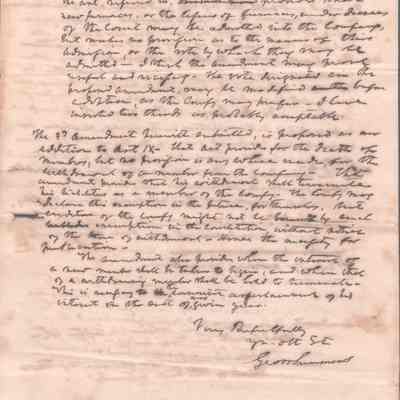 the act, referred to, provides that
new furnaces, or the lessees of furnaces, under leases
of the Council may be admitted into the Company,
but makes no provision as to the manner of their
admission, or the vote by which they may be
admitted - I think the amendment may prove
useful and necessary - The vote designated in the
proposed amendment, may be modified before
adoption, as the Compy may prefer - I have
inserted two thirds as probably acceptable
The 3d amendment herewith submitted, is proposed as an
addition to Art IX - that act provides for the death of
members, but no provision is any where made for the
withdrawal of a member from the Company - The
amendment provides that his withdrawal shall terminate
his liabilities as a member of the Company - The body may
declare this exemption in the future, for themselves, but
creditors of the Compy might not be bound by such
exemption in the constitution, without notice
of the of withdrawal - Hence the necessity for
publication -
The amendment also provides when the interest of
a new member shall be taken to begin, and when that
of a withdrawing member shall be held to terminate -
This is necessary to the ascertainment of his
interest on the out of given year.
Very Respectfully
yr. obt St
Geo W